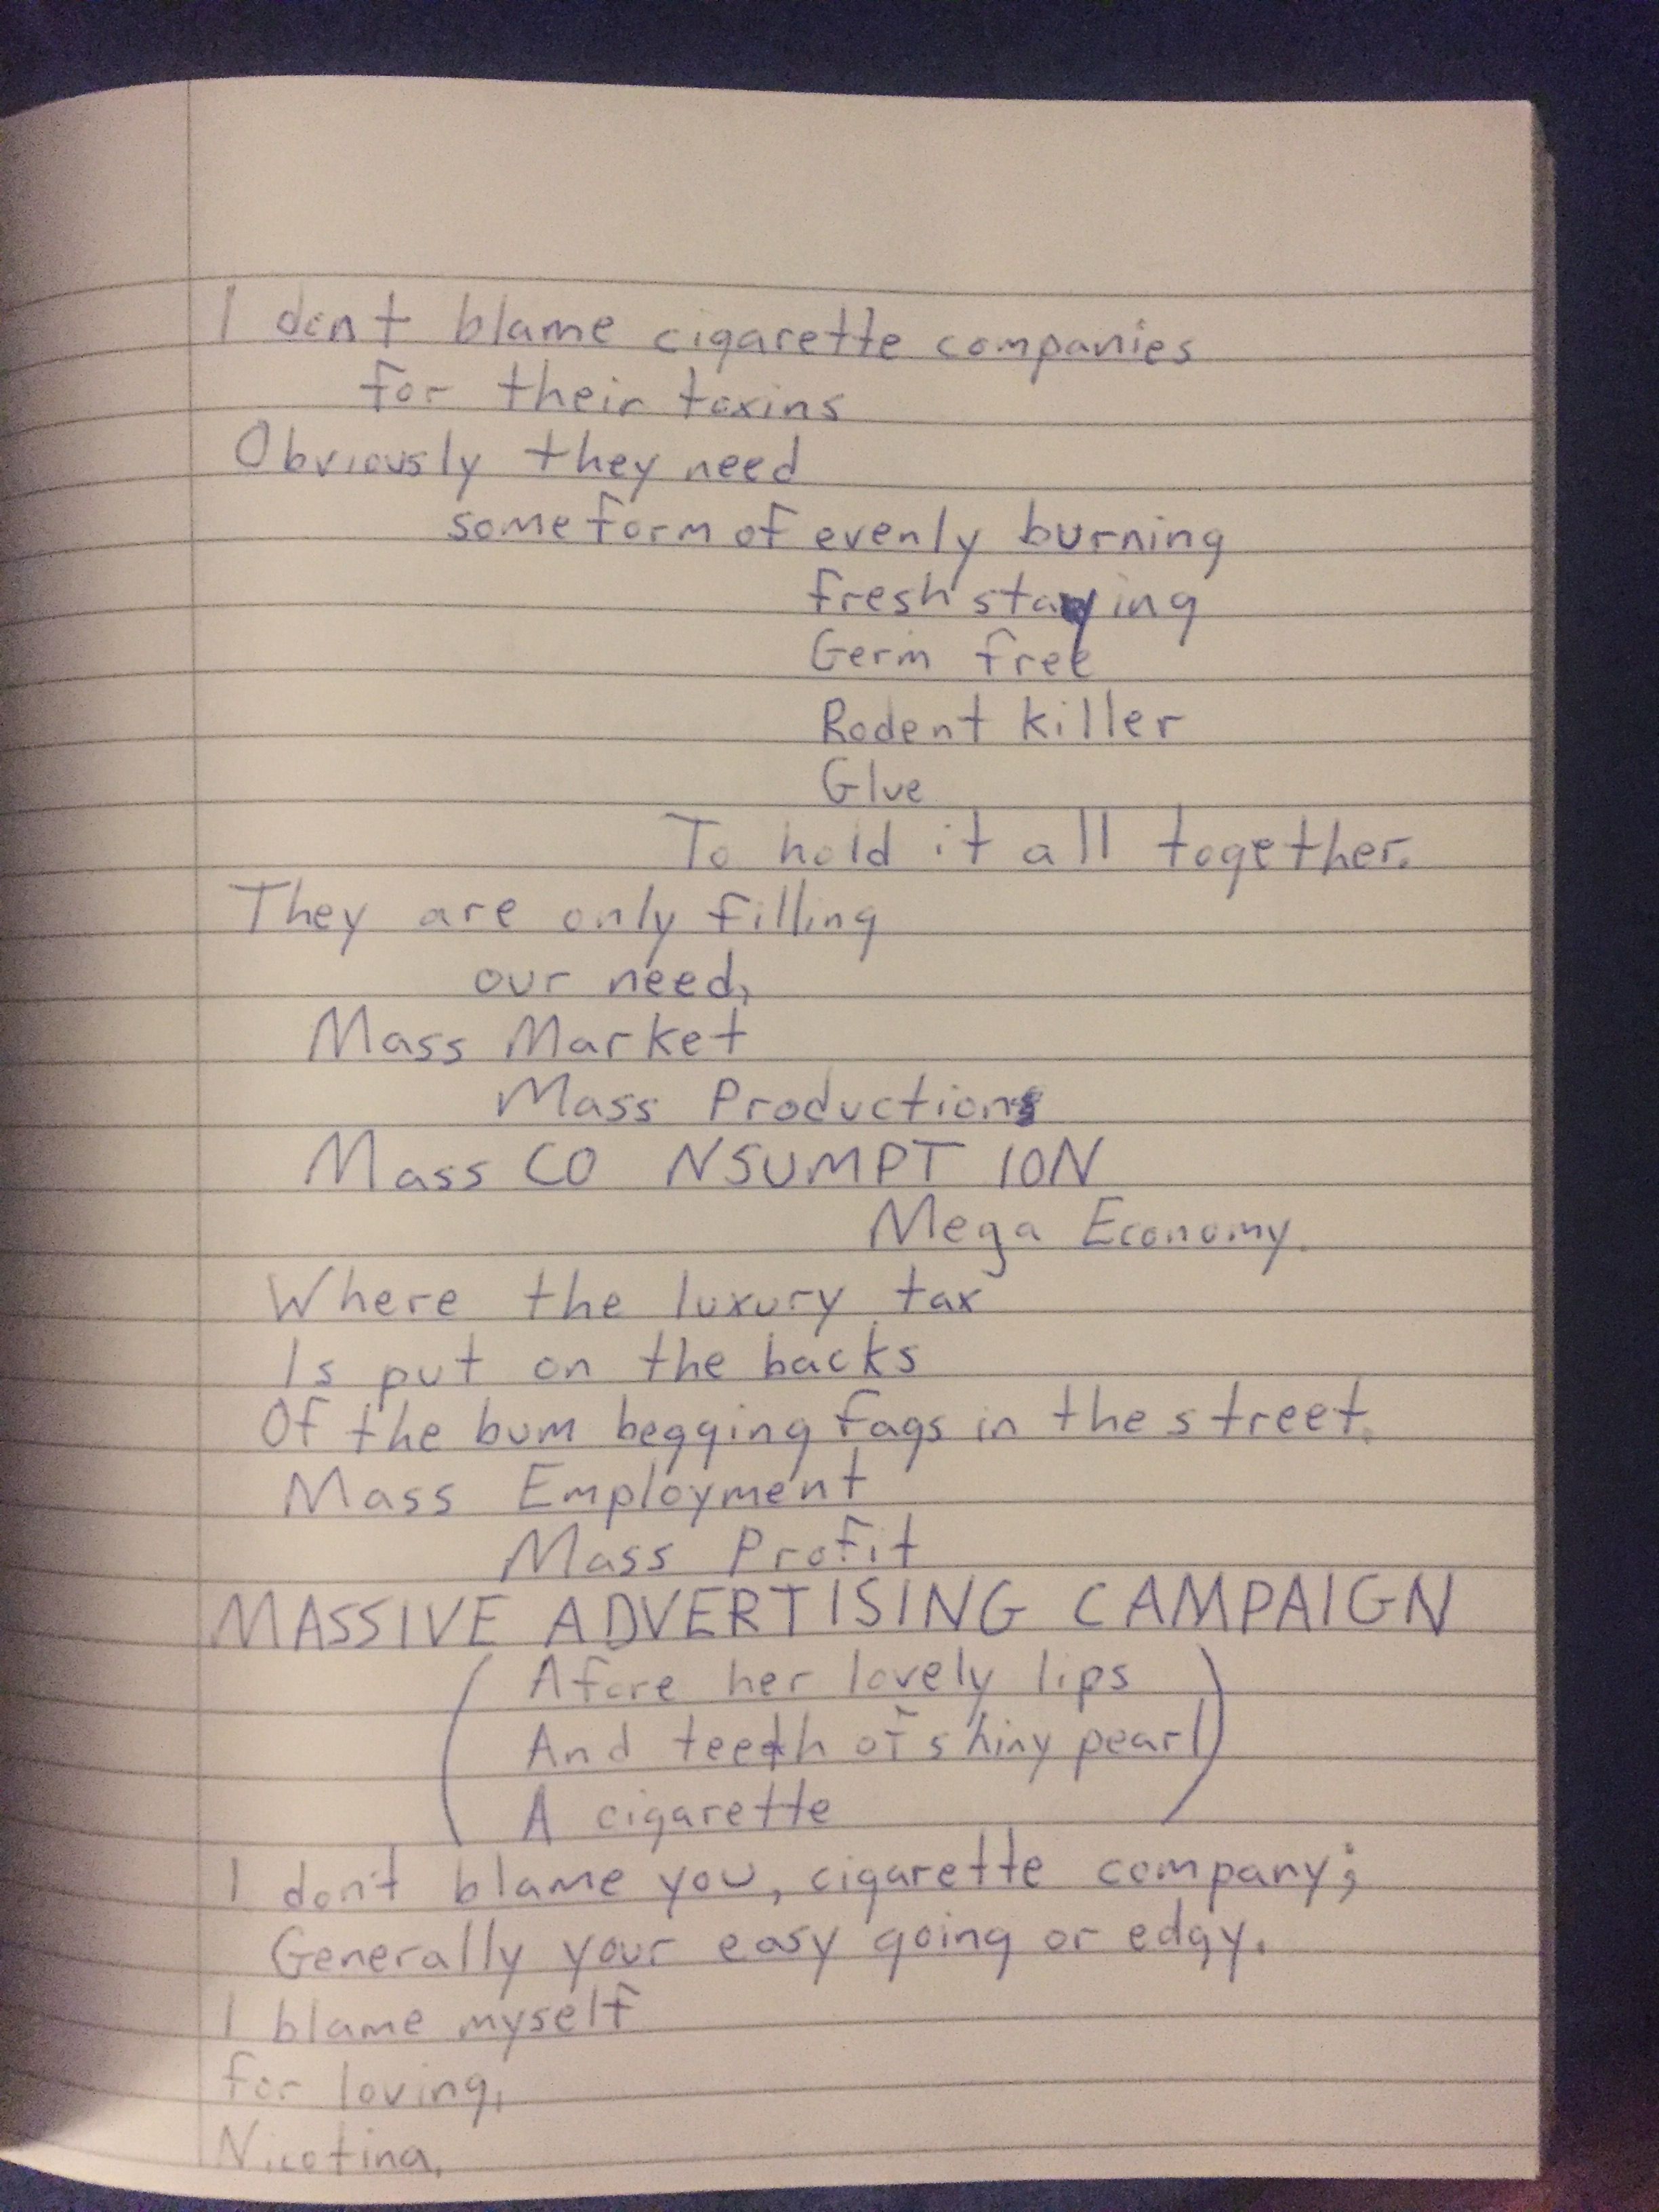 I dont blame cigarette companies
for their toxins
Obviously they need
some form of evenly burning
fresh staying
Germ free
Rodent killer
Glue
To hold it all together.
They are only filling
our need,
Mass Market
Mass Production
Mass CO NSUMPT ION
Mega Economy.
Where the luxury tax
Is put on the backs
Of the bum begging fags in the street.
Mass Employment
Mass Profit
MASSIVE ADVERTISING CAMPAIGN
(Afore her lovely lips
And teeth of shiny pearl
A cigarette)
I don't blame you, cigarette company;
Generally your easy going or edgy.
I blame myself
for loving,
Nicotina.